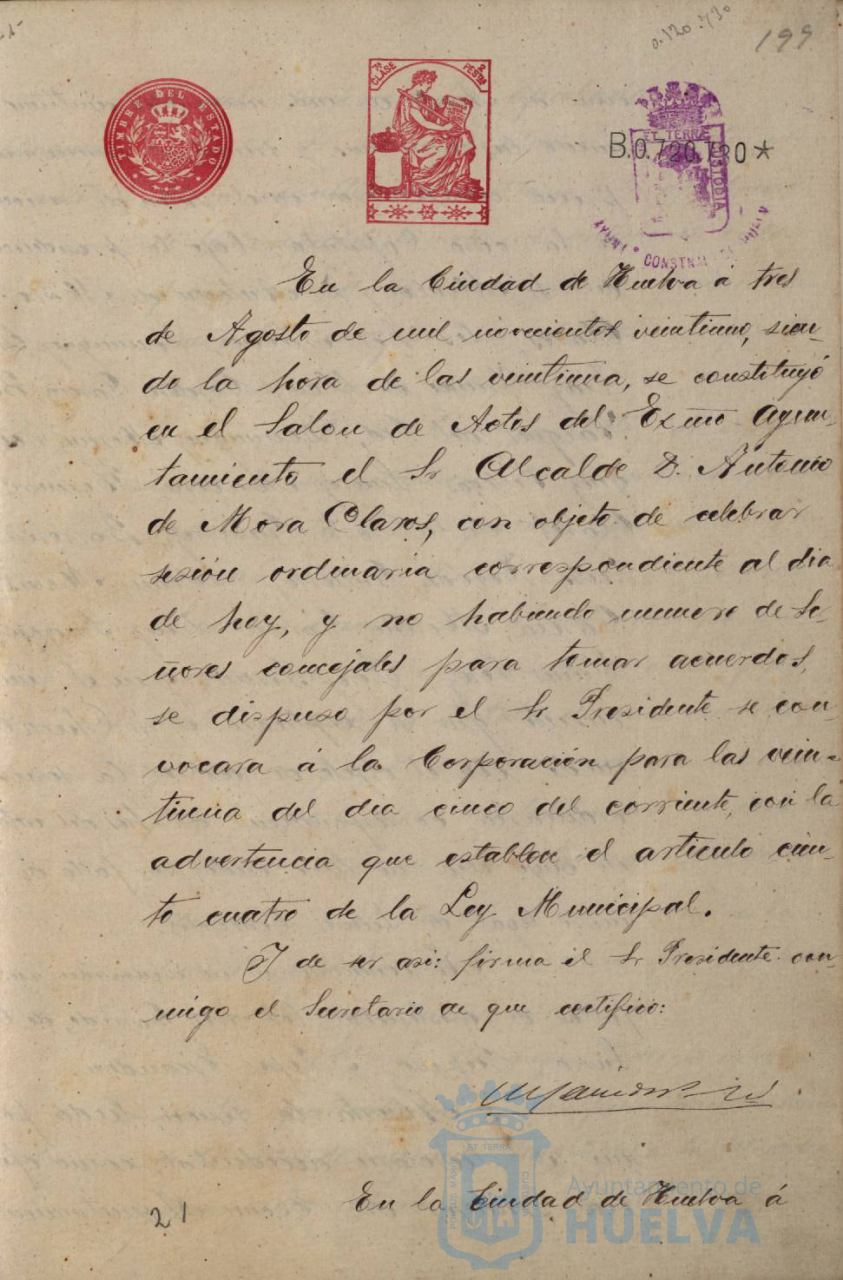 0.720.730
199
TIMBRE DEL ESTADO
7ª CLASE 2 PESETAS
B.0.720.730*
ET TERRÆ CUSTODIA
CONSTN
En la Ciudad de Huelva á tres
de Agosto de mil novecientos veintiuno, sien-
do la hora de las veintiuna, se constituyó
en el Salon de Actos del Exmo Ayun-
tamiento el Sr Alcalde D. Antonio
de Mora Claros, con objeto de celebrar
sesión ordinaria correspondiente al dia
de hoy, y no habiendo numero de Se-
ñores concejales para tomar acuerdos,
se dispuso por el Sr Presidente se con-
vocara á la Corporación para las vein-
tiuna del dia cinco del corriente, con la
advertencia que establece el articulo cien-
to cuatro de la Ley Municipal.
Y de ser asi: firma el Sr Presidente con-
migo el Secretario de que certifico:
21
En la Ciudad de Huelva á
Ayuntamiento de
HUELVA